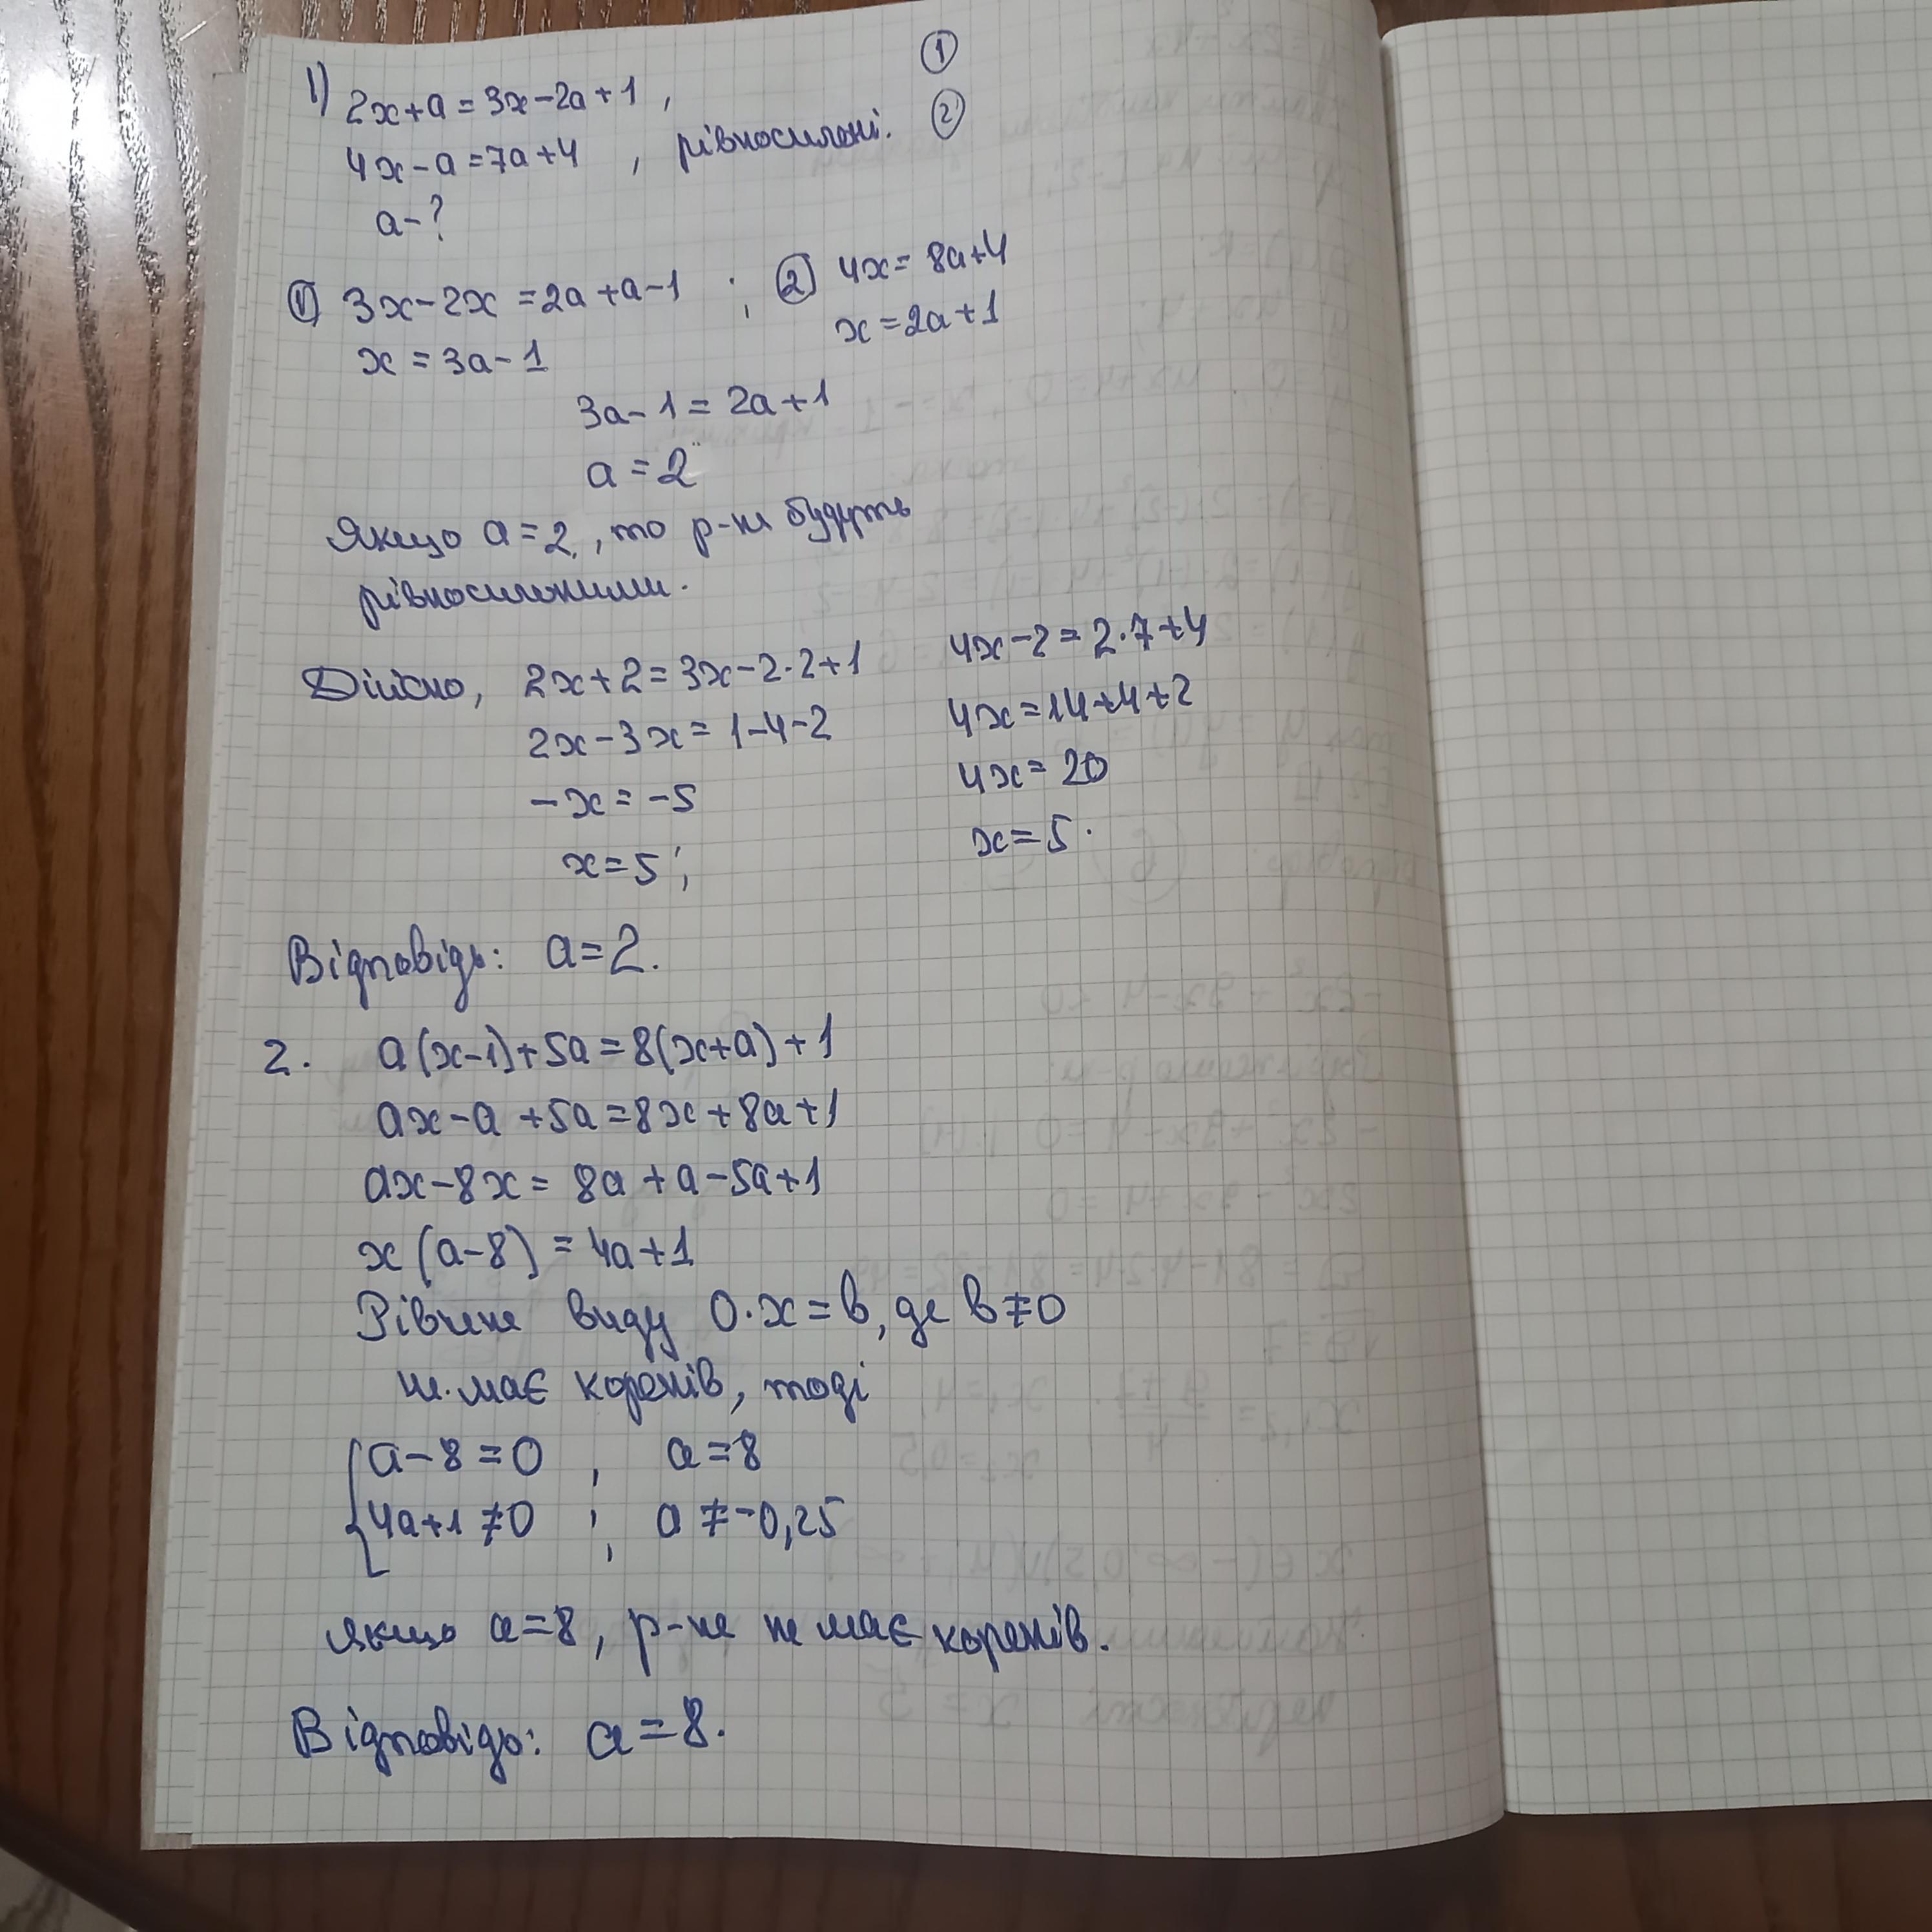 1) 2x+a=3x-2a+1, ①
4x-a=7a+4, рівносильні. ②
a-?
① 3x-2x=2a+a-1 ; ② 4x=8a+4
x=3a-1 x=2a+1
3a-1=2a+1
a=2
Якщо a=2, то р-ня будуть
рівносильними.
Дійсно, 2x+2=3x-2·2+1 4x-2=2·7+4
2x-3x=1-4-2 4x=14+4+2
-x=-5 4x=20
x=5; x=5.
Відповідь: a=2.
2. a(x-1)+5a=8(x+a)+1
ax-a+5a=8x+8a+1
ax-8x=8a+a-5a+1
x(a-8)=4a+1
Рівняння виду 0·x=b, де b≠0
не має коренів, тоді
{a-8=0, a=8
4a+1≠0; a≠-0,25
якщо a=8, р-ня не має коренів.
Відповідь: a=8.